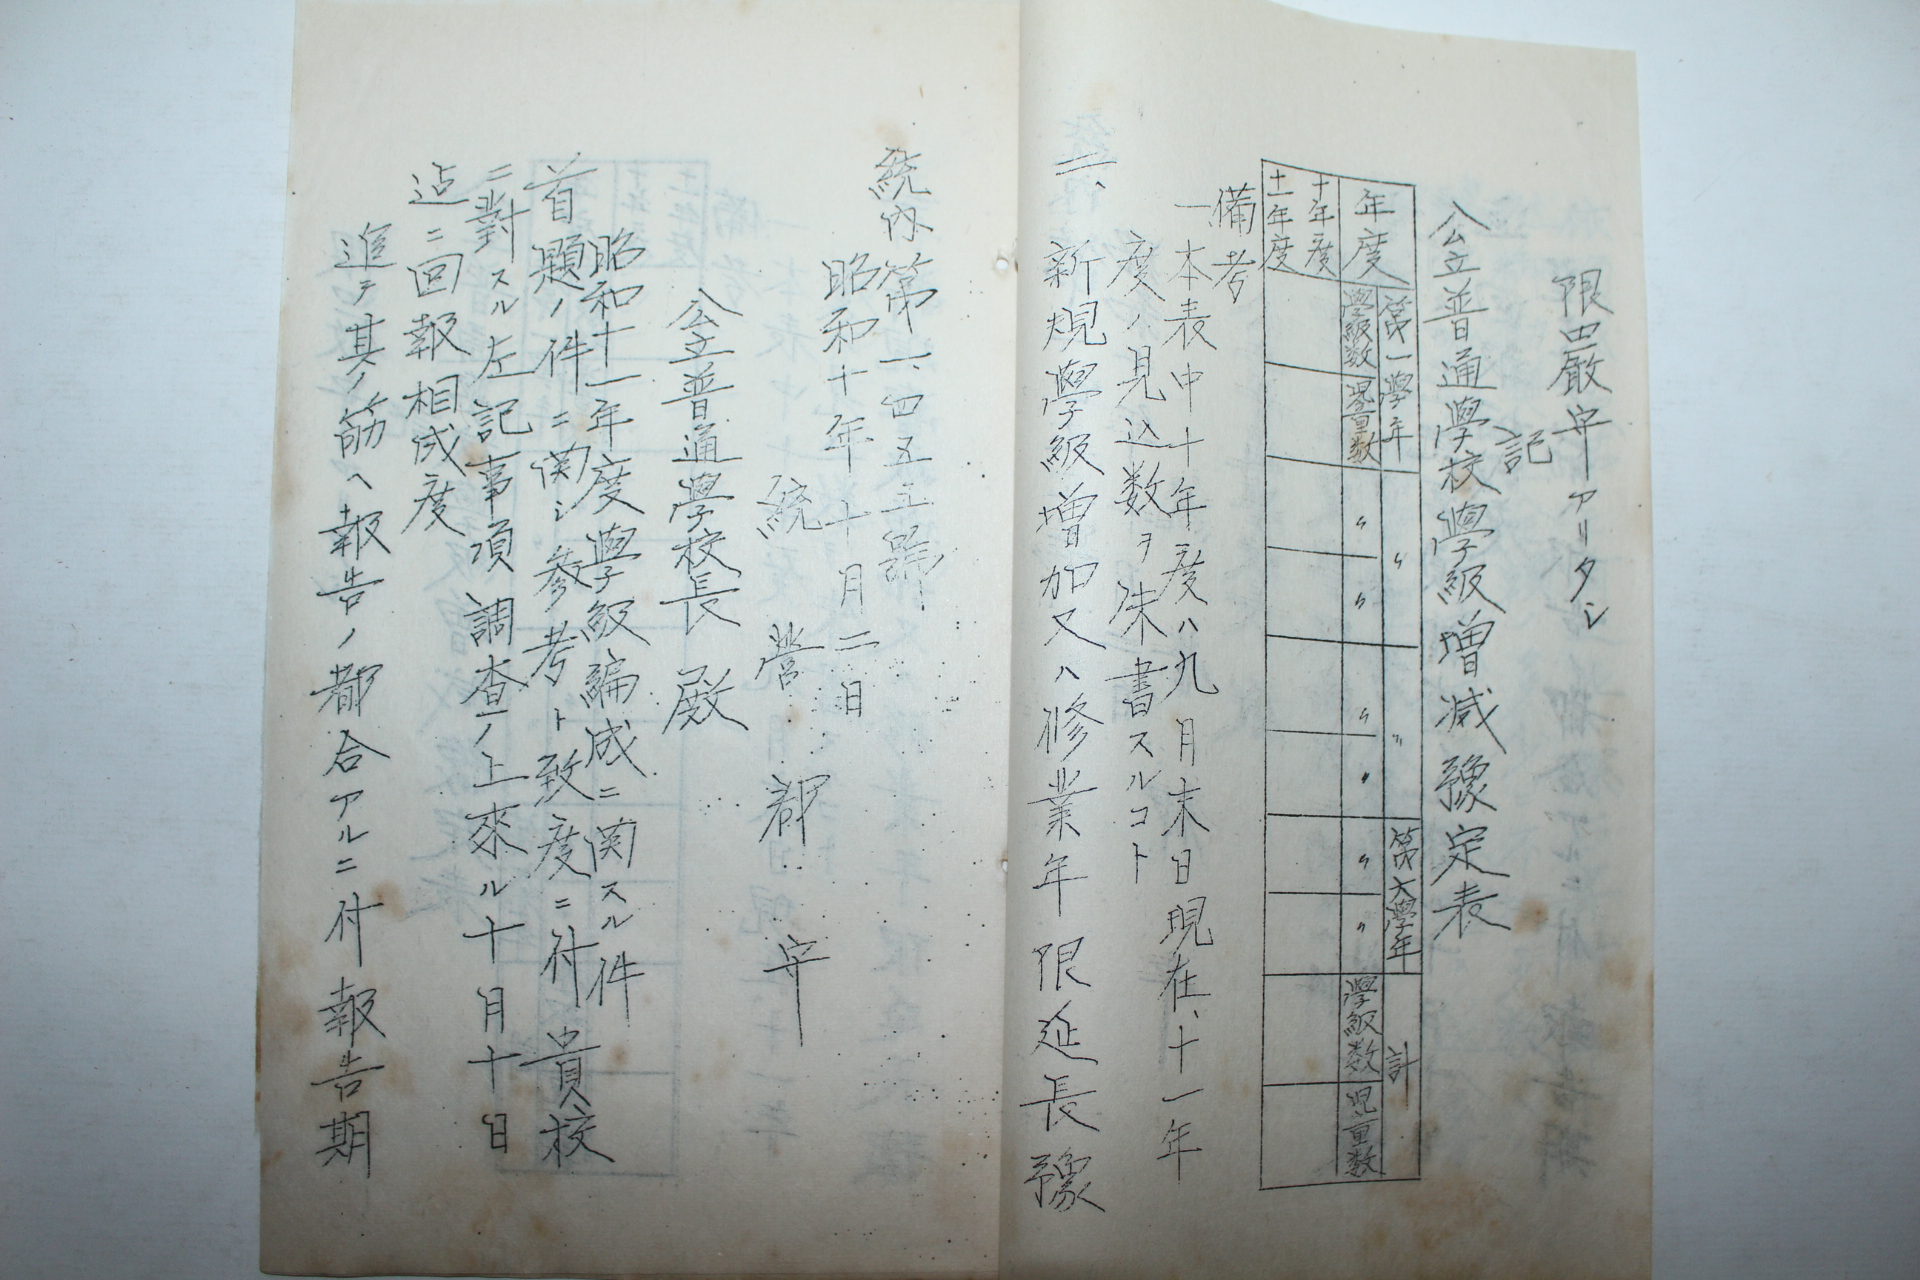 限嚴守アリタシ
記
公立普通學校學級増減豫定表
年度 第一學年 〃 〃 第六學年 計
學級数 児童数 〃 〃 〃 〃 〃 〃 學級数 児童数
十年度
十一年度
備考
一、本表中十年度ハ九月末日現在、十一年
度ハ見込数ヲ朱書スルコト
二、新規學級増加又ハ修業年限延長豫
統内第一四五五號
昭和十年十月二日
統營郡守
公立普通學校長殿
昭和十一年度學級編成ニ関スル件
首題ノ件ニ関シ参考ト致度ニ付貴校
ニ對スル左記事項調査ノ上來ル十月十日
迄ニ回報相成度
追テ其ノ筋ヘ報告ノ都合アルニ付報告期